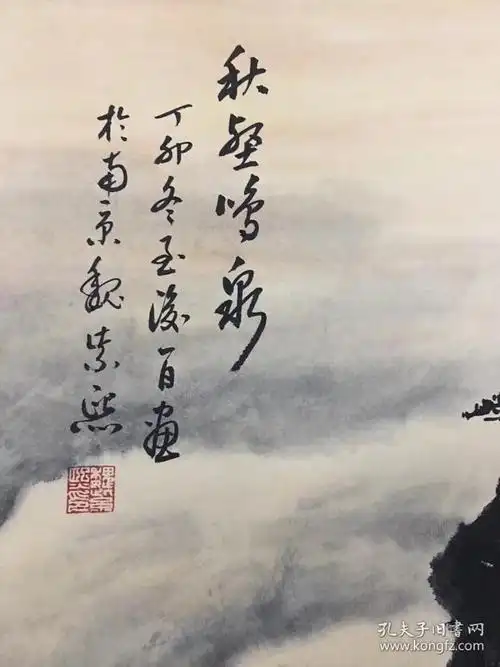 秋壑鸣泉
丁卯冬至後一日画
於南京魏紫熙
魏紫熙印
孔夫子旧书网
www.kongfz.com